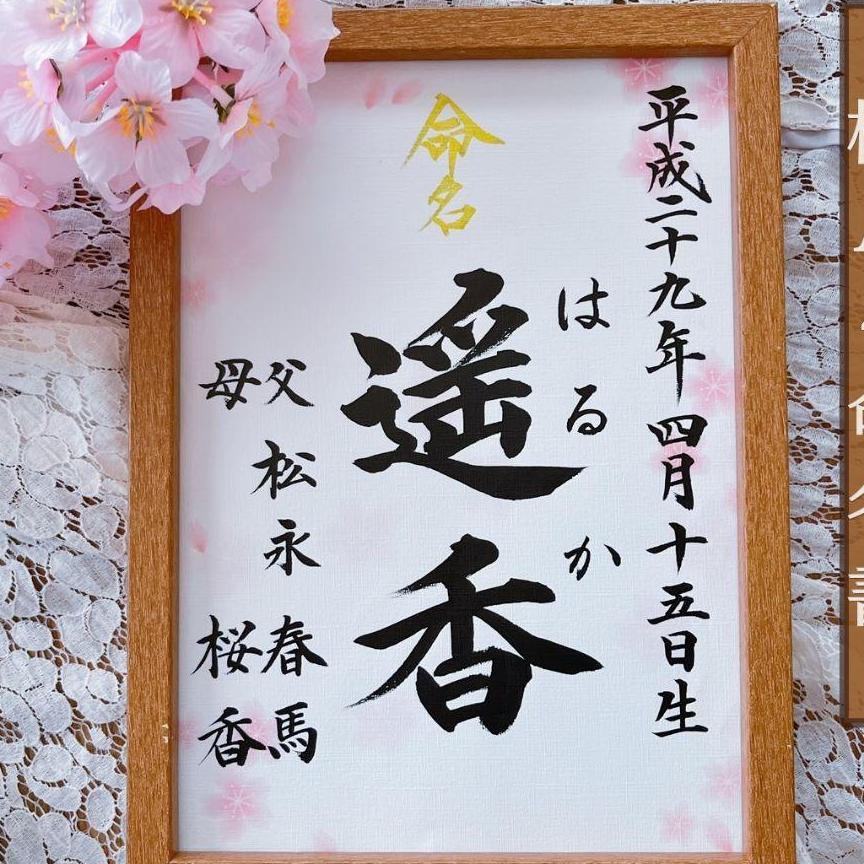 平成二十九年四月十五日生
命名
遥香
はるか
父 松永 春馬
母 桜香